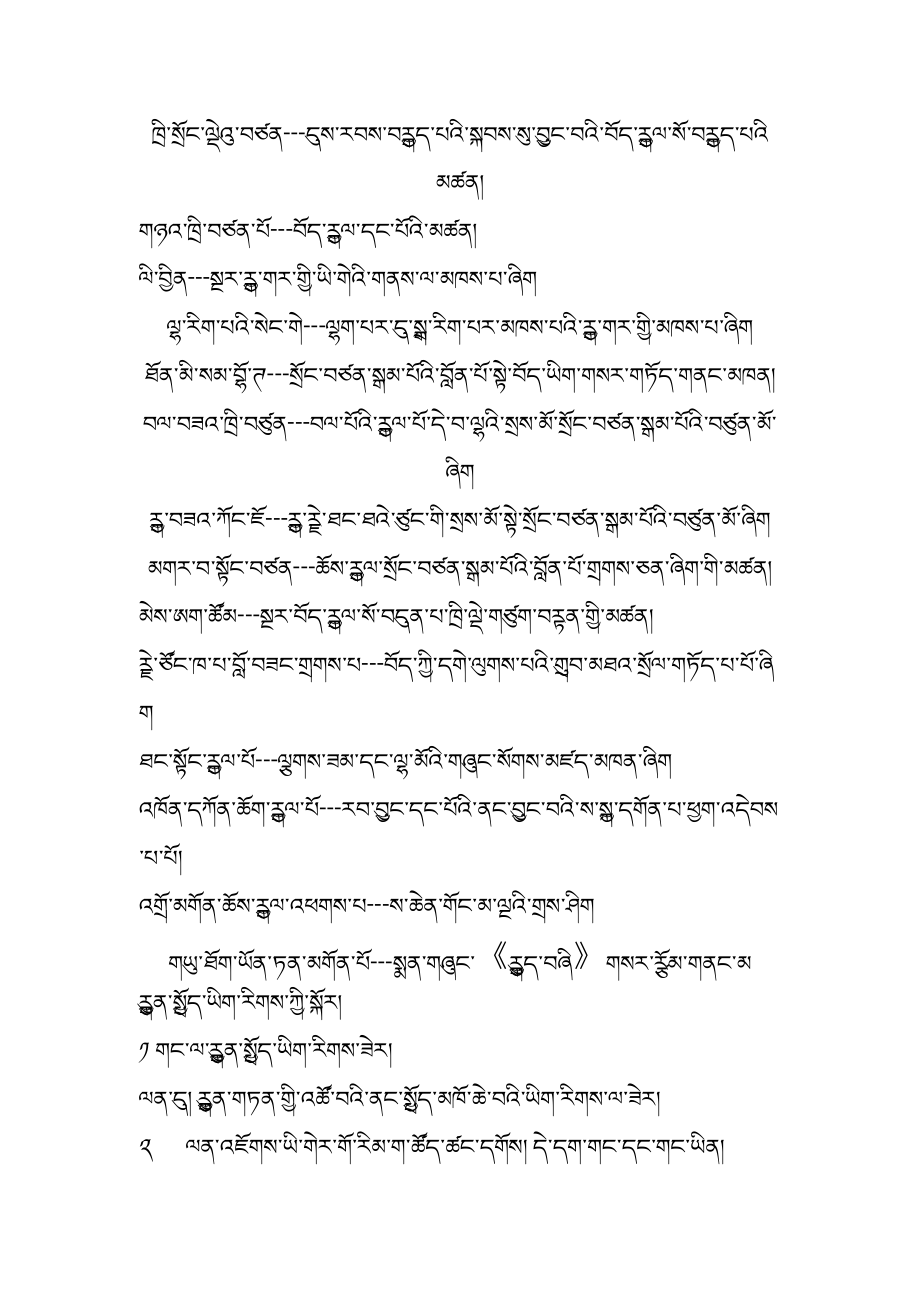 ཁྲི་སྲོང་ལྡེའུ་བཙན---དུས་རབས་བརྒྱད་པའི་སྐབས་སུ་བྱུང་བའི་བོད་རྒྱལ་སོ་བརྒྱད་པའི
མཚན།
གཉའ་ཁྲི་བཙན་པོ---བོད་རྒྱལ་དང་པོའི་མཚན།
ལི་བྱིན---སྔར་རྒྱ་གར་གྱི་ཡི་གེའི་གནས་ལ་མཁས་པ་ཞིག
ལྷ་རིག་པའི་སེང་གེ---ལྷག་པར་དུ་སྒྲ་རིག་པར་མཁས་པའི་རྒྱ་གར་གྱི་མཁས་པ་ཞིག
ཐོན་མི་སམ་བྷོ་ཊ---སྲོང་བཙན་སྒམ་པོའི་བློན་པོ་སྟེ་བོད་ཡིག་གསར་གཏོད་གནང་མཁན།
བལ་བཟའ་ཁྲི་བཙུན---བལ་པོའི་རྒྱལ་པོ་དེ་བ་ལྷའི་སྲས་མོ་སྲོང་བཙན་སྒམ་པོའི་བཙུན་མོ་
ཞིག
རྒྱ་བཟའ་ཀོང་ཇོ---རྒྱ་རྗེ་ཐང་ཐའེ་ཙུང་གི་སྲས་མོ་སྟེ་སྲོང་བཙན་སྒམ་པོའི་བཙུན་མོ་ཞིག
མགར་བ་སྟོང་བཙན---ཆོས་རྒྱལ་སྲོང་བཙན་སྒམ་པོའི་བློན་པོ་གྲགས་ཅན་ཞིག་གི་མཚན།
མེས་ཨག་ཚོམ---སྔར་བོད་རྒྱལ་སོ་བདུན་པ་ཁྲི་ལྡེ་གཙུག་བརྟན་གྱི་མཚན།
རྗེ་ཙོང་ཁ་པ་བློ་བཟང་གྲགས་པ---བོད་ཀྱི་དགེ་ལུགས་པའི་གྲུབ་མཐའ་སྲོལ་གཏོད་པ་པོ་ཞི
ག
ཐང་སྟོང་རྒྱལ་པོ---ལྕགས་ཟམ་དང་ལྷ་མོའི་གཞུང་སོགས་མཛད་མཁན་ཞིག
འཁོན་དཀོན་ཆོག་རྒྱལ་པོ---རབ་བྱུང་དང་པོའི་ནང་བྱུང་བའི་ས་སྐྱ་དགོན་པ་ཕྱག་འདེབས
་པ་པོ།
འགྲོ་མགོན་ཆོས་རྒྱལ་འཕགས་པ---ས་ཆེན་གོང་མ་ལྔའི་གྲས་ཤིག
གཡུ་ཐོག་ཡོན་ཏན་མགོན་པོ---སྨན་གཞུང་《རྒྱུད་བཞི》 གསར་རྩོམ་གནང་མ
རྒྱུན་སྤྱོད་ཡིག་རིགས་ཀྱི་སྐོར།
༡ གང་ལ་རྒྱུན་སྤྱོད་ཡིག་རིགས་ཟེར།
ལན་དུ། རྒྱུན་གཏན་གྱི་འཚོ་བའི་ནང་སྤྱོད་མཁོ་ཆེ་བའི་ཡིག་རིགས་ལ་ཟེར།
༢ ལན་འཇོགས་ཡི་གེར་གོ་རིམ་ག་ཚོད་ཚང་དགོས། དེ་དག་གང་དང་གང་ཡིན།